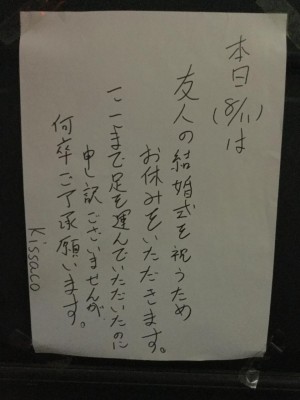 本日は
(8/11)
友人の結婚式を祝うため
お休みをいただきます。
ここまで足を運んでいただいたのに
申し訳ございませんが
何卒ご了承願います。
Kissaco